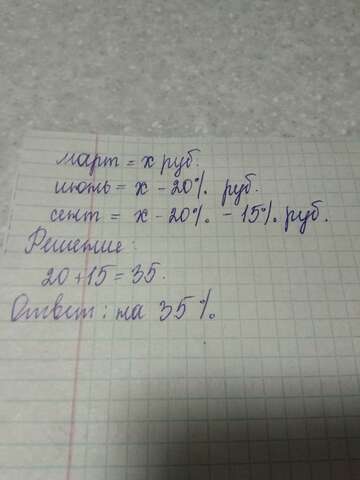 март = х руб.
июнь = х - 20% руб.
сент = х - 20% - 15% руб.
Решение:
20+15=35.
Ответ: на 35%.